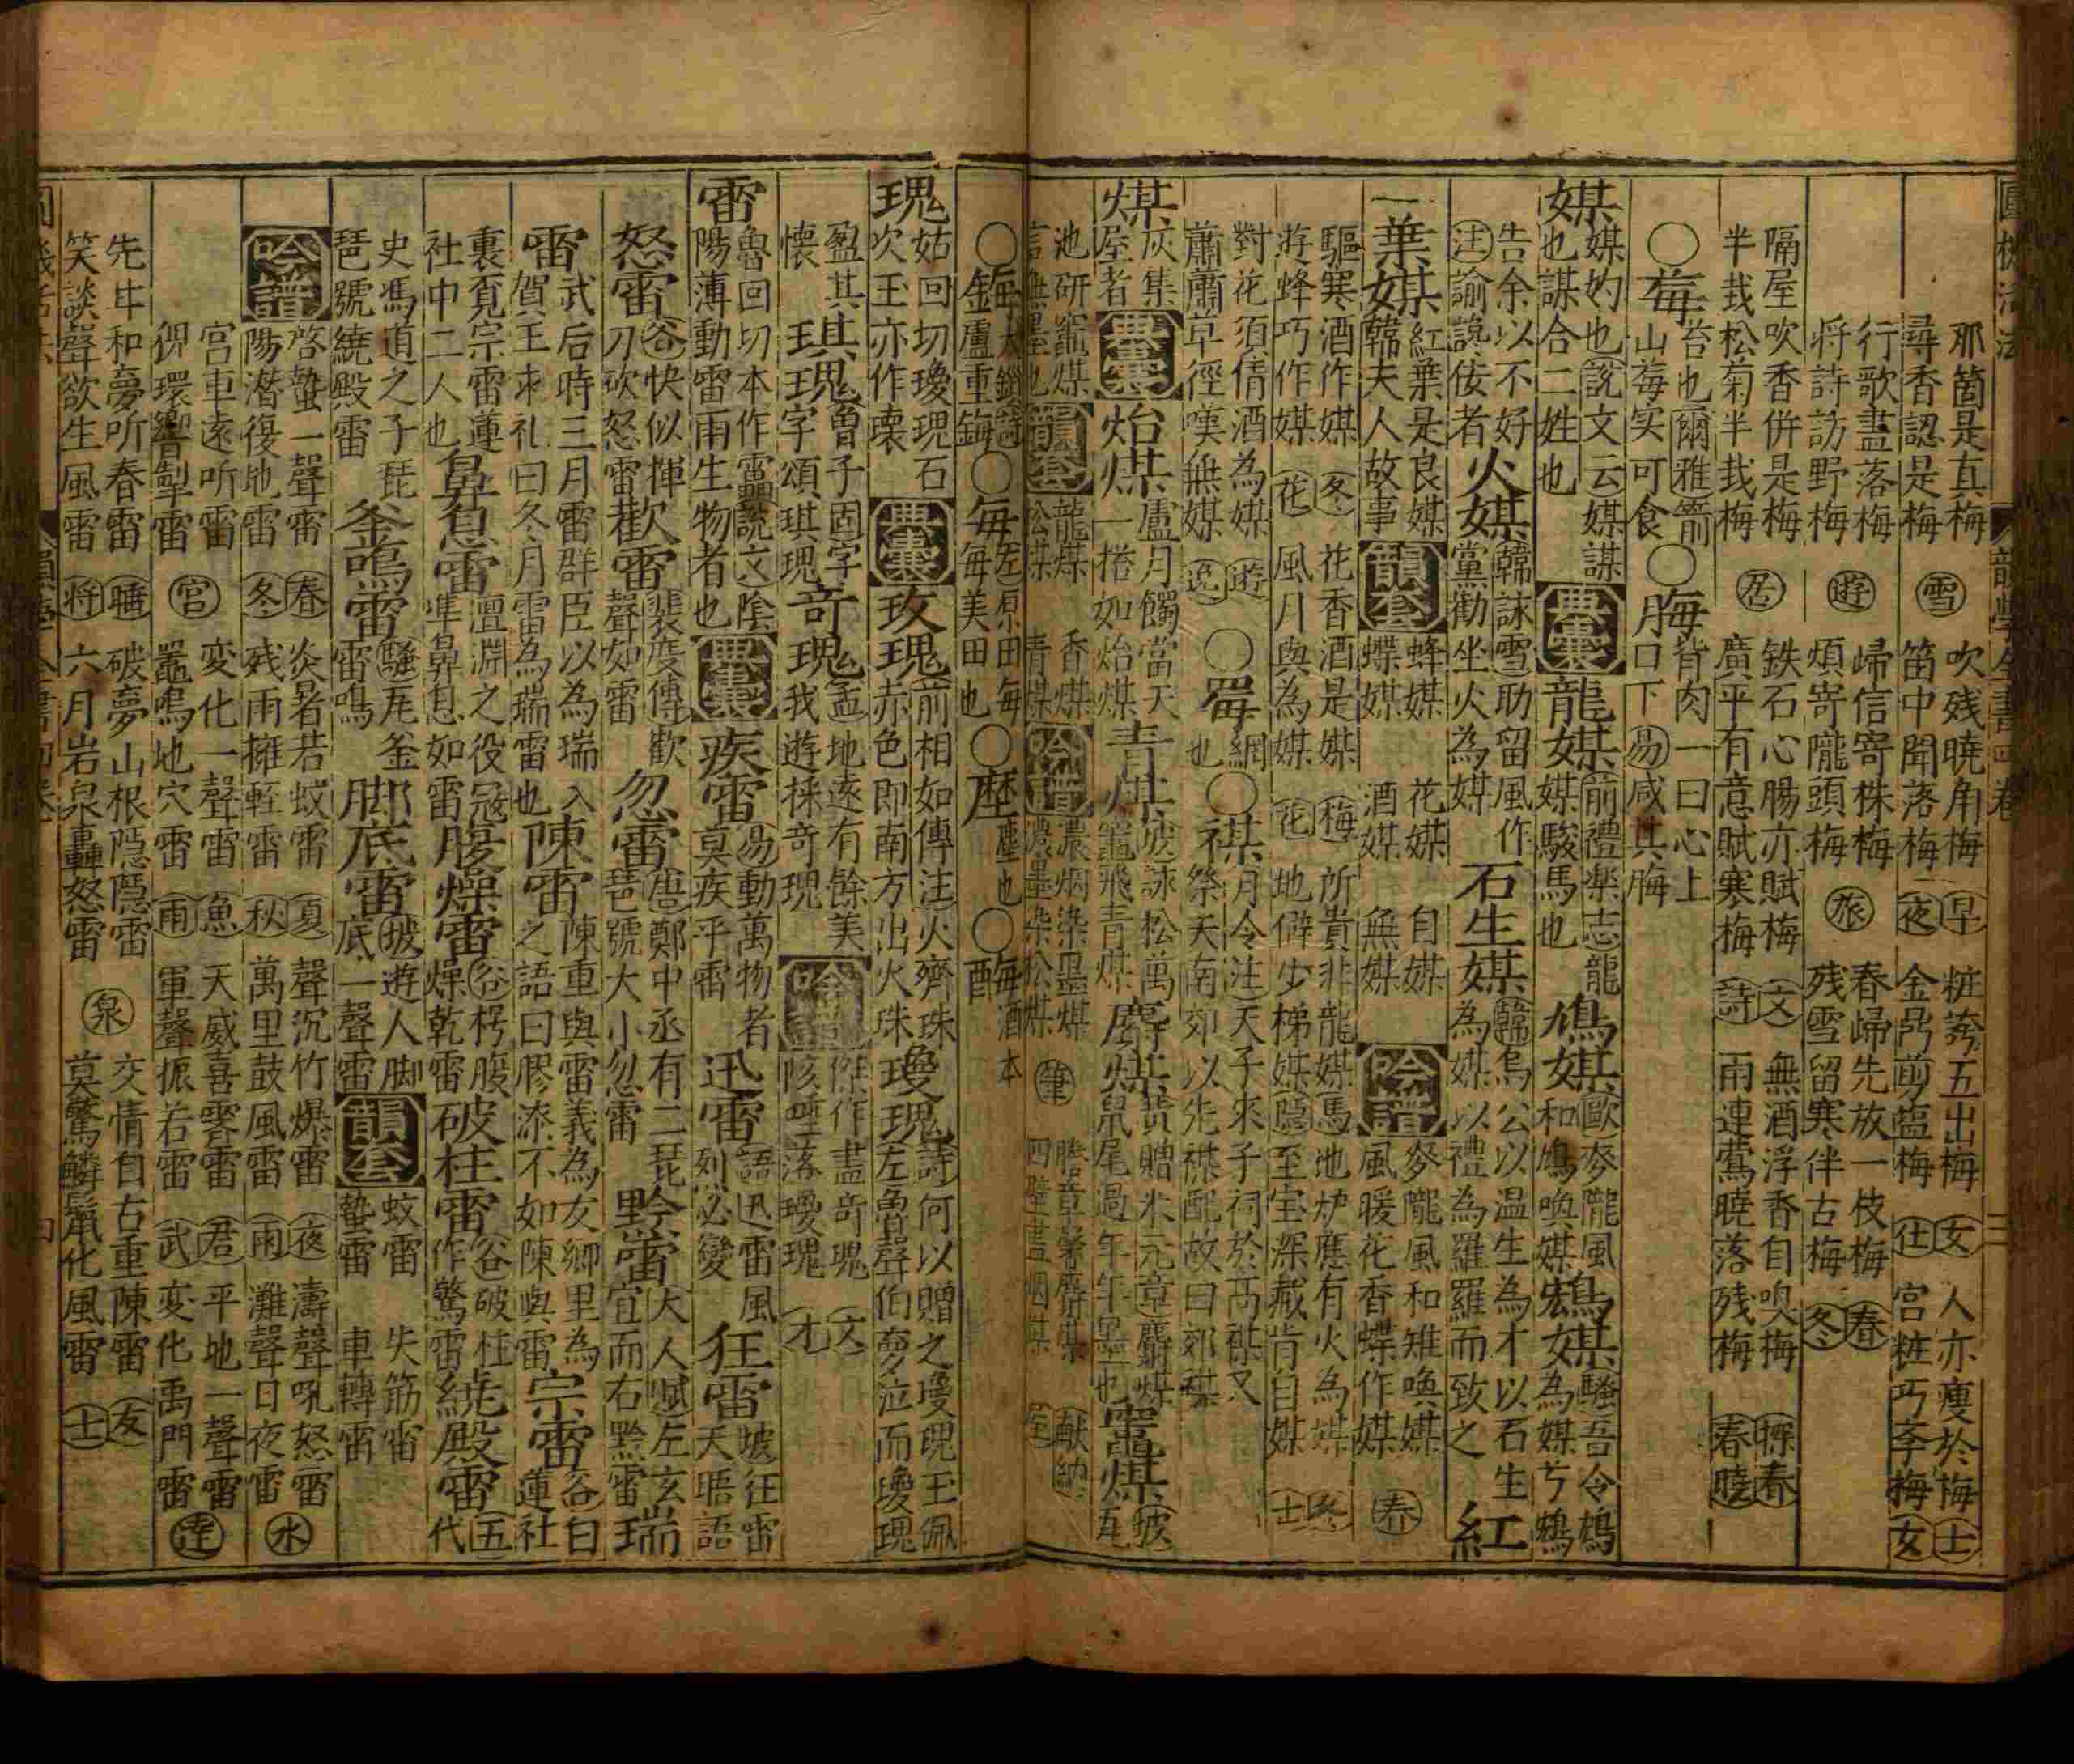 那箇是真梅 吹残曉角梅 早 粧誇五出梅 女 人亦瘦於梅 士
尋香認是梅 雪 笛中聞落梅 夜 金鼎剪盐梅 仕 宮粧巧李梅 女
行歌盡落梅 歸信寄株梅 春歸先放一枝梅 春
将詩訪野梅 遊 煩寄隴頭梅 旅 残雪留寒伴古梅 冬
隔屋吹香併是梅 鉄石心腸亦賦梅 文 無酒浮香自嗅梅 探春
半栽松菊半栽梅 居 廣平有意賦寒梅 詩 雨連鶯曉落残梅 春曉
○莓 苔也爾雅葥山莓实可食 ○脢 背肉一曰心上口下易咸其脢
媒 媒妁也説文云媒謀也謀合二姓也 典囊 龍媒 前禮楽志龍媒駿馬也 鳩媒 歐麥隴風和鳩喚媒 鴆媒 騷吾令鴆為媒兮鴆
告余以不好注諭讒佞者 火媒 韓詠雪助留風作黨勸坐火為媒 石生媒 韓烏公以温生為才以石生為媒以禮為羅羅而致之 紅
葉媒 紅葉是良媒韓夫人故事 韻套 蜂媒 蝶媒 花媒 酒媒 自媒 無媒 吟譜 麥隴風和雉喚媒 風暖花香蝶作媒 春
驅寒酒作媒 冬 花香酒是媒 梅 所貴非龍媒 馬 地炉應有火為媒
遊蜂巧作媒 花 風月與為媒 花 地僻少梯媒 隱 至宝深藏肯自媒 士
對花須倩酒為媒 遊 ○罞 網也 ○禖 月令注天子來子祠於高禖又
蕭蕭草徑嘆無媒 祭天南郊以先禖配故曰郊禖
煤 灰集屋者 典囊 炲煤 盧月髑當天一捲如炲煤 青煤 坡詠松萬竈飛青煤 麝煤 黄贈米元章麝煤鼠尾過年年墨也 竈煤 坡瓦
池研竈煤言無墨也 韻套 龍煤 松煤 香煤 青煤 吟譜 濃烟染墨煤 濃墨染松煤 筆 四壁畫烟煤 献納
○鋂 大鎖詩盧重鋂 ○每 左原田每每美田也 ○塺 塵也 ○酶 酒本
瑰 姑回切瓊瑰石次玉亦作瓌 典囊 玫瑰 前相如傳注火齊珠赤色即南方出火珠 瓊瑰 詩何以贈之瓊瑰玉佩左魯聲伯夢泣而瓊瑰
盈其懷 琪瑰 魯子固字字頌琪瑰 奇瑰 孟地遠有餘美我遊採奇瑰 吟譜 傑作盡奇瑰 文 咳唾落瓊瑰 才
雷 魯回切本作靁説文陰陽薄動雷雨生物者也 典囊 疾雷 易動萬物者莫疾乎雷 迅雷 語迅雷風烈必變 狂雷 坡狂雷天語
怒雷 谷快似揮刀砍怒雷 歡雷 裴度傳歡聲如雷 忽雷 唐鄭中丞有二琵琶號大小忽雷 黔雷 大人賦左玄冥而右黔雷 瑞
雷 武后時三月雷群臣以為瑞入賀王求礼曰冬月雷為瑞雷也 陳雷 陳重與雷義為友鄉里為之語曰膠漆不如陳與雷 宗雷 谷白蓮社
裏覓宗雷蓮社中二人也 鼻息雷 澶淵之役冦凖鼻息如雷 腹燥雷 谷枵腹燥乾雷 破柱雷 谷破柱作驚雷 繞殿雷 五代
史馮道之子琵琶號繞殿雷 釜鳴雷 騷瓦釜雷鳴 脚底雷 坡遊人脚底一聲雷 韻套 蚊雷 蟄雷 失筯雷 車轉雷
吟譜 啓蟄一聲雷 春 炎暑若蚊雷 夏 聲沉竹爆雷 夜 濤聲吼怒雷 水
陽潜復地雷 冬 残雨擁輕雷 秋 萬里鼓風雷 雨 灘聲日夜雷
宮車遠听雷 宮 変化一聲雷 魚 天威喜霽雷 君 平地一聲雷 逹
佩環響掣雷 鼉鳴地穴雷 雨 軍聲振若雷 武 変化禹門雷
先生和夢听春雷 睡 破夢山根隱隱雷 泉 交情自古重陳雷 友
笑談聲欲生風雷 将 六月岩泉轟怒雷 莫驚鱗鬣化風雷 士